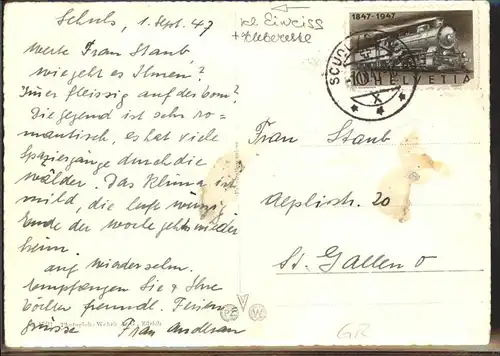 Schuls, 1. Sept. 47
Werte Frau Staub,
wie geht es Ihnen?
Imer fleissig auf der
Die gegend ist sehr ro-
mantisch, es hat viele
Spaziergänge durch die
wälder. Das Klima ist
mild, die luft würzig
Ende der woche gehts wieder
heim.
auf wiedersehn.
Empfangen Sie & Ihre
Töchter freundl. Ferien
grüsse Frau
Photoglob-Wehrli Zürich
kl Eiweiss
+ klebereste
1847-1947
10
HELVETIA
SCUOL
X
Frau Staub
Aeplistr. 20
St. Gallen O
GR